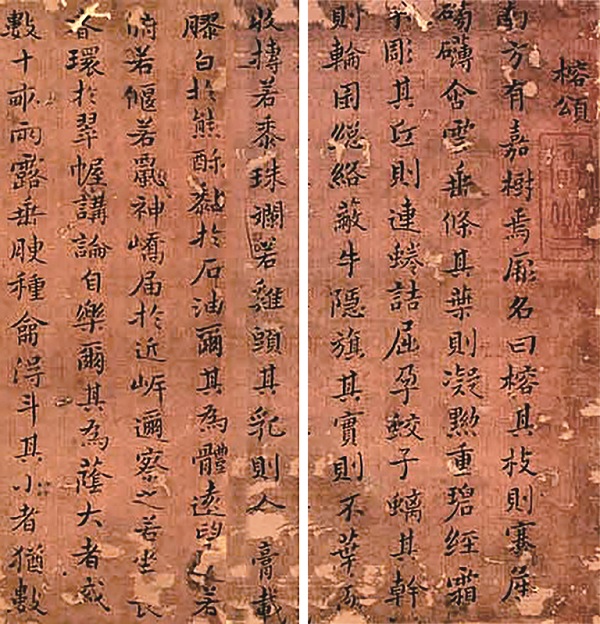 榕頌
南方有嘉樹焉厥名曰榕其枝則蹇產
礧磚含雲垂條其葉則凝黝重碧經霜
彫其丘則連蜷詰屈孕蛟子螭其幹
則輪囷絡蔽牛隱旗其實則不華
收摶若黍珠斕若雞頭其乳則人膏載
膠白於熊酥黏於石油爾其為體遠
俯若偃若鼠神嶠屆於近岍邇察之若坐
環於翠幄講論自樂爾其為蔭大者或
數十畝雨露垂腴種龠得斗其小者猶數